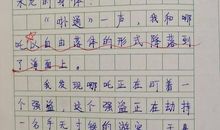 "扑通"一声，我和哪
吒以自由落体的形式降落到
了道面上。
我发现哪吒正在盯着一
个强盗，这个强盗正在劫持
一名手无寸铁的游客